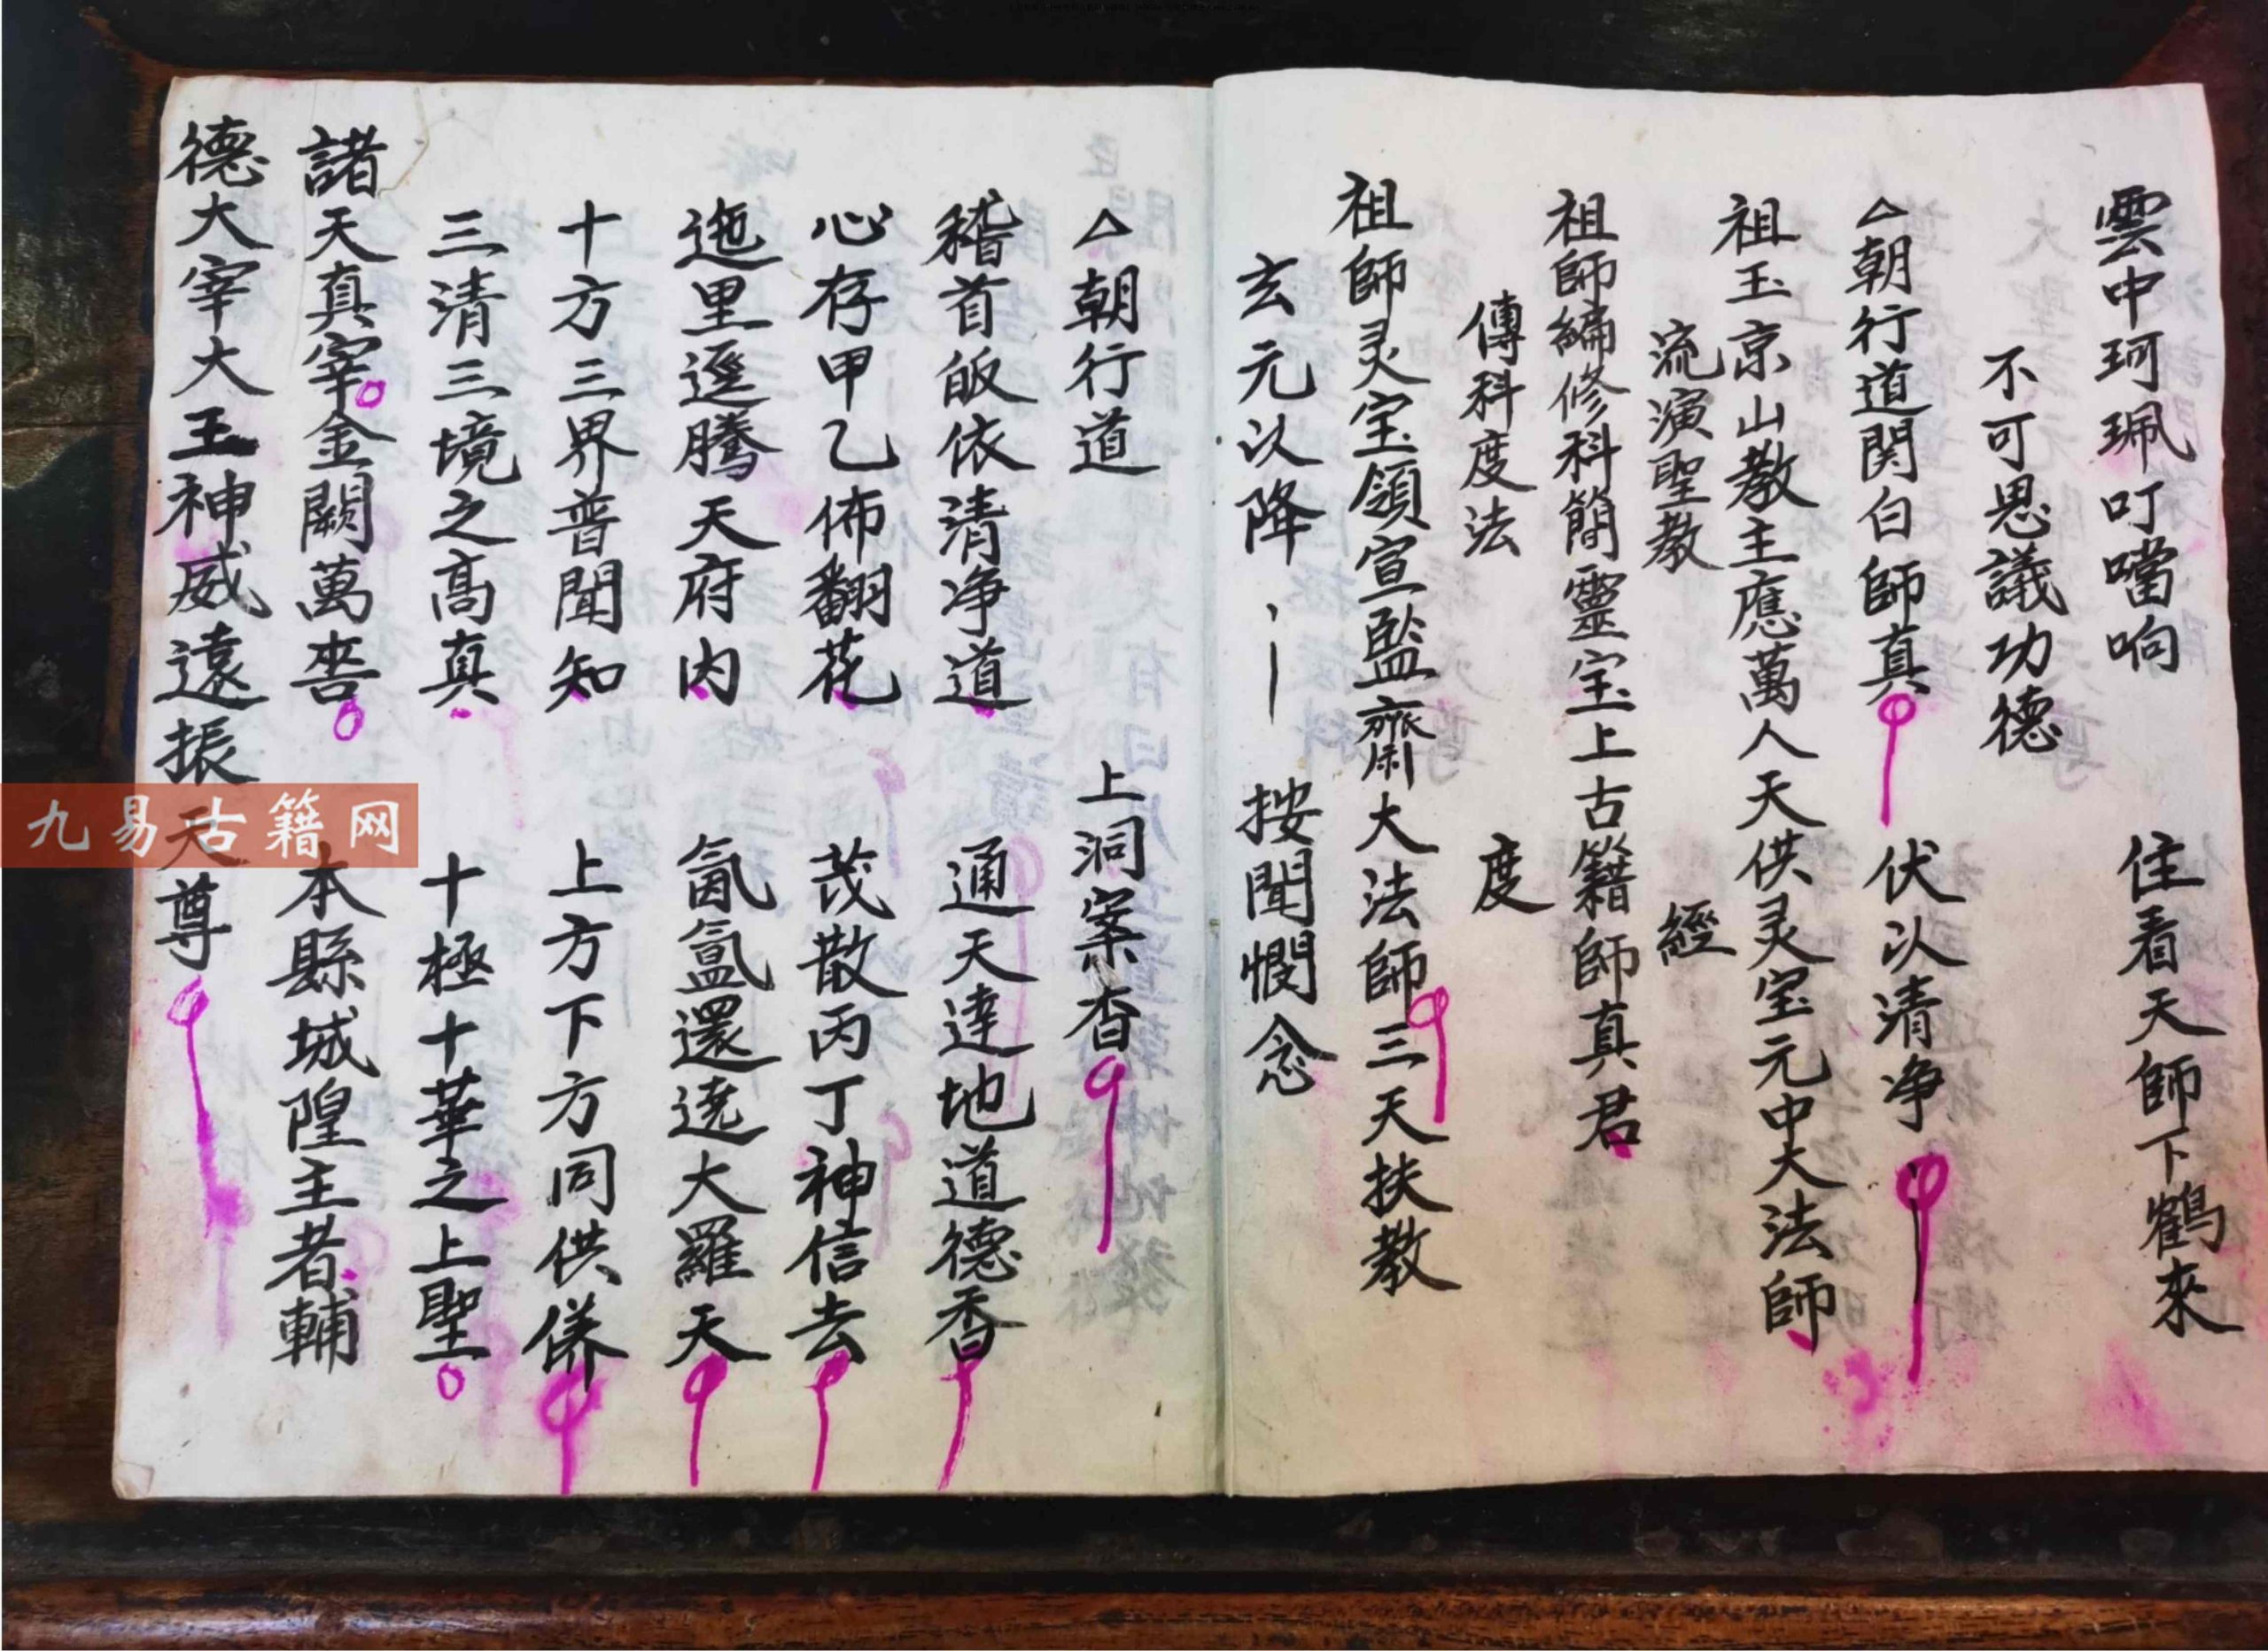 雲中珂珮叮噹响 住看天師下鶴來
不可思議功德
△朝行道関白師真 伏以清净
祖玉京山教主應萬人天供灵宝元中大法師
流演聖教 經
祖師編修科簡靈宝上古籍師真君
傳科度法 度
祖師灵宝領宣監齋大法師三天扶教
玄元以降 按聞憫念
△朝行道 上洞案香
稽首皈依清净道 通天達地道德香
心存甲乙佈翻花 茂散丙丁神信去
迤里逕騰天府内 氤氳還遶大羅天
十方三界普聞知 上方下方同供俻
三清三境之高真 十極十華之上聖
諸天真宰金闕萬 本縣城隍主者輔
德大宰大王神威遠振天尊
九易古籍网